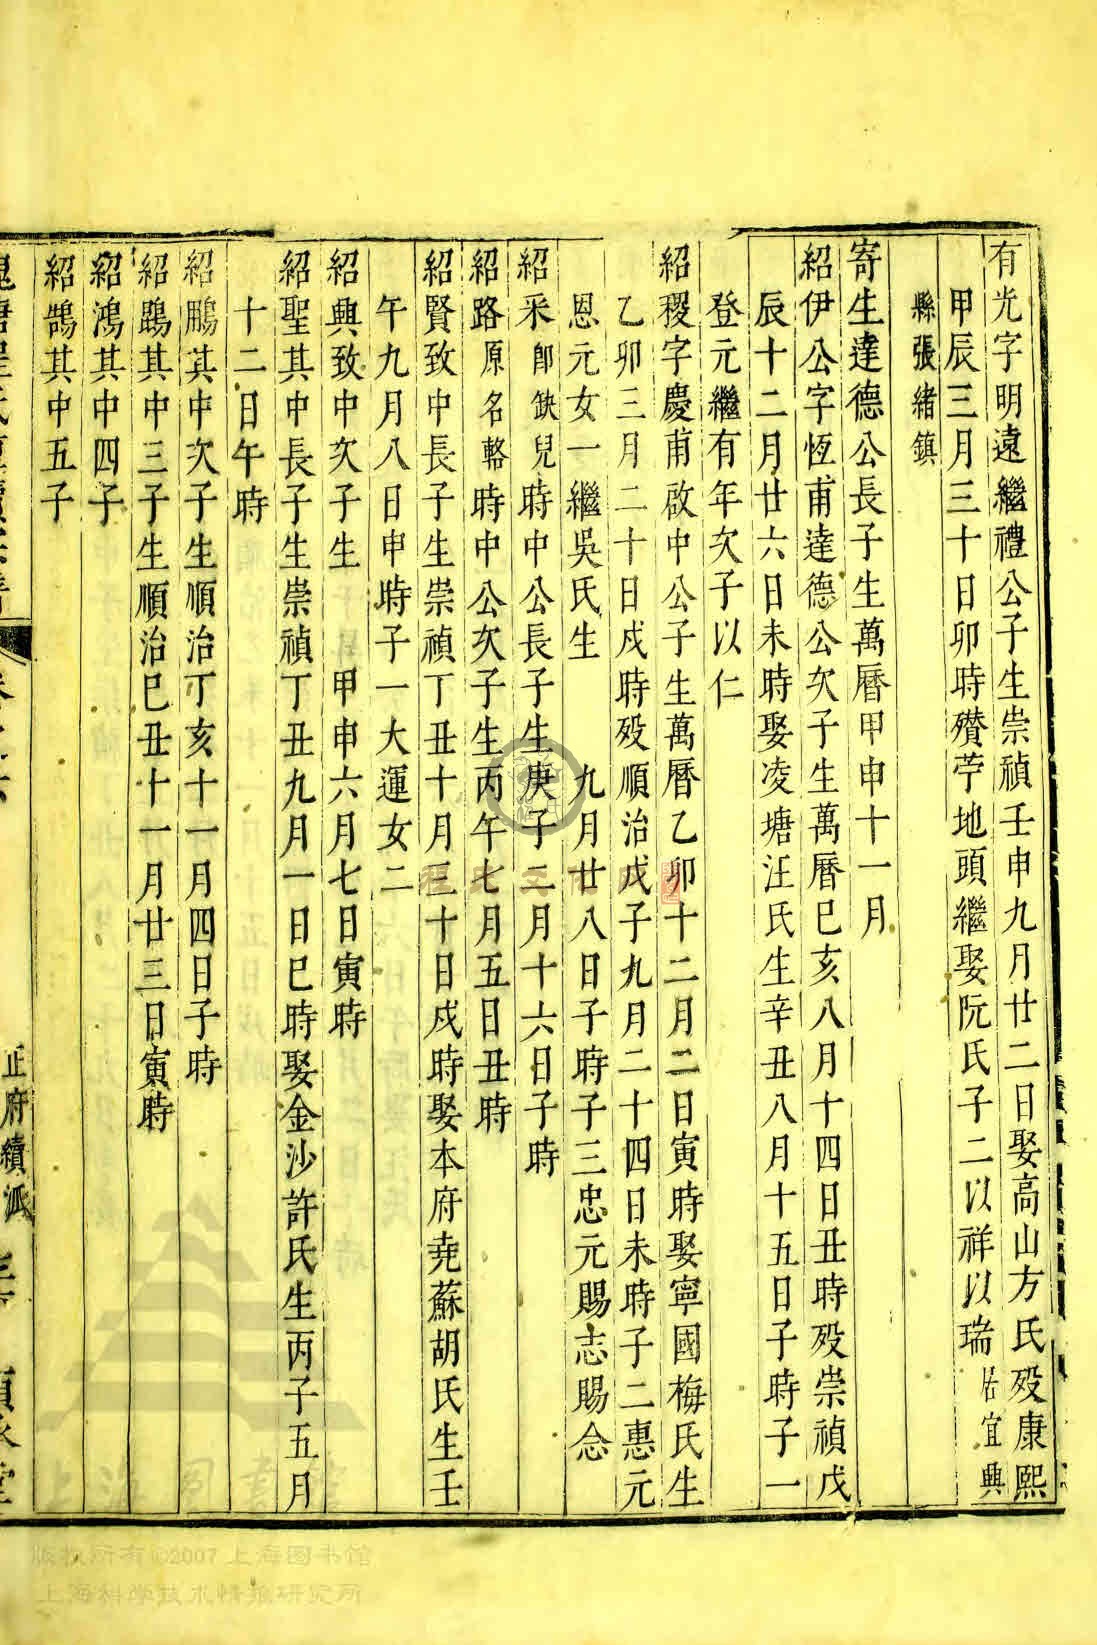 有光字明遠繼禮公子生崇禎壬申九月廿二日娶高山方氏殁康熙
甲辰三月三十日卯時殯苧地頭繼娶阮氏子二以祥以瑞居宜興
縣張緒鎮
寄生達德公長子生萬曆甲申十一月
紹伊公字恆甫達德公次子生萬曆己亥八月十四日丑時殁崇禎戊
辰十二月廿六日未時娶凌塘汪氏生辛丑八月十五日子時子一
登元繼有年次子以仁
紹稷字慶甫啟中公子生萬曆乙卯十二月二日寅時娶寧國梅氏生
乙卯三月二十日戌時殁順治戊子九月二十四日未時子二惠元
恩元女一繼吳氏生 九月廿八日子時子三忠元賜志賜念
紹采郎缺兒時中公長子生庚子二月十六日子時
紹路原名輅時中公次子生丙午七月五日丑時
紹賢致中長子生崇禎丁丑十月三十日戌時娶本府堯蘇胡氏生壬
午九月八日申時子一大運女二
紹興致中次子生 甲申六月七日寅時
紹聖其中長子生崇禎丁丑九月一日巳時娶金沙許氏生丙子五月
十二日午時
紹鵬其中次子生順治丁亥十一月四日子時
紹鵾其中三子生順治己丑十一月廿三日寅時
紹鴻其中四子
紹鵠其中五子
正府續派
版权所有©2007上海图书馆
上海科学技术情报研究所